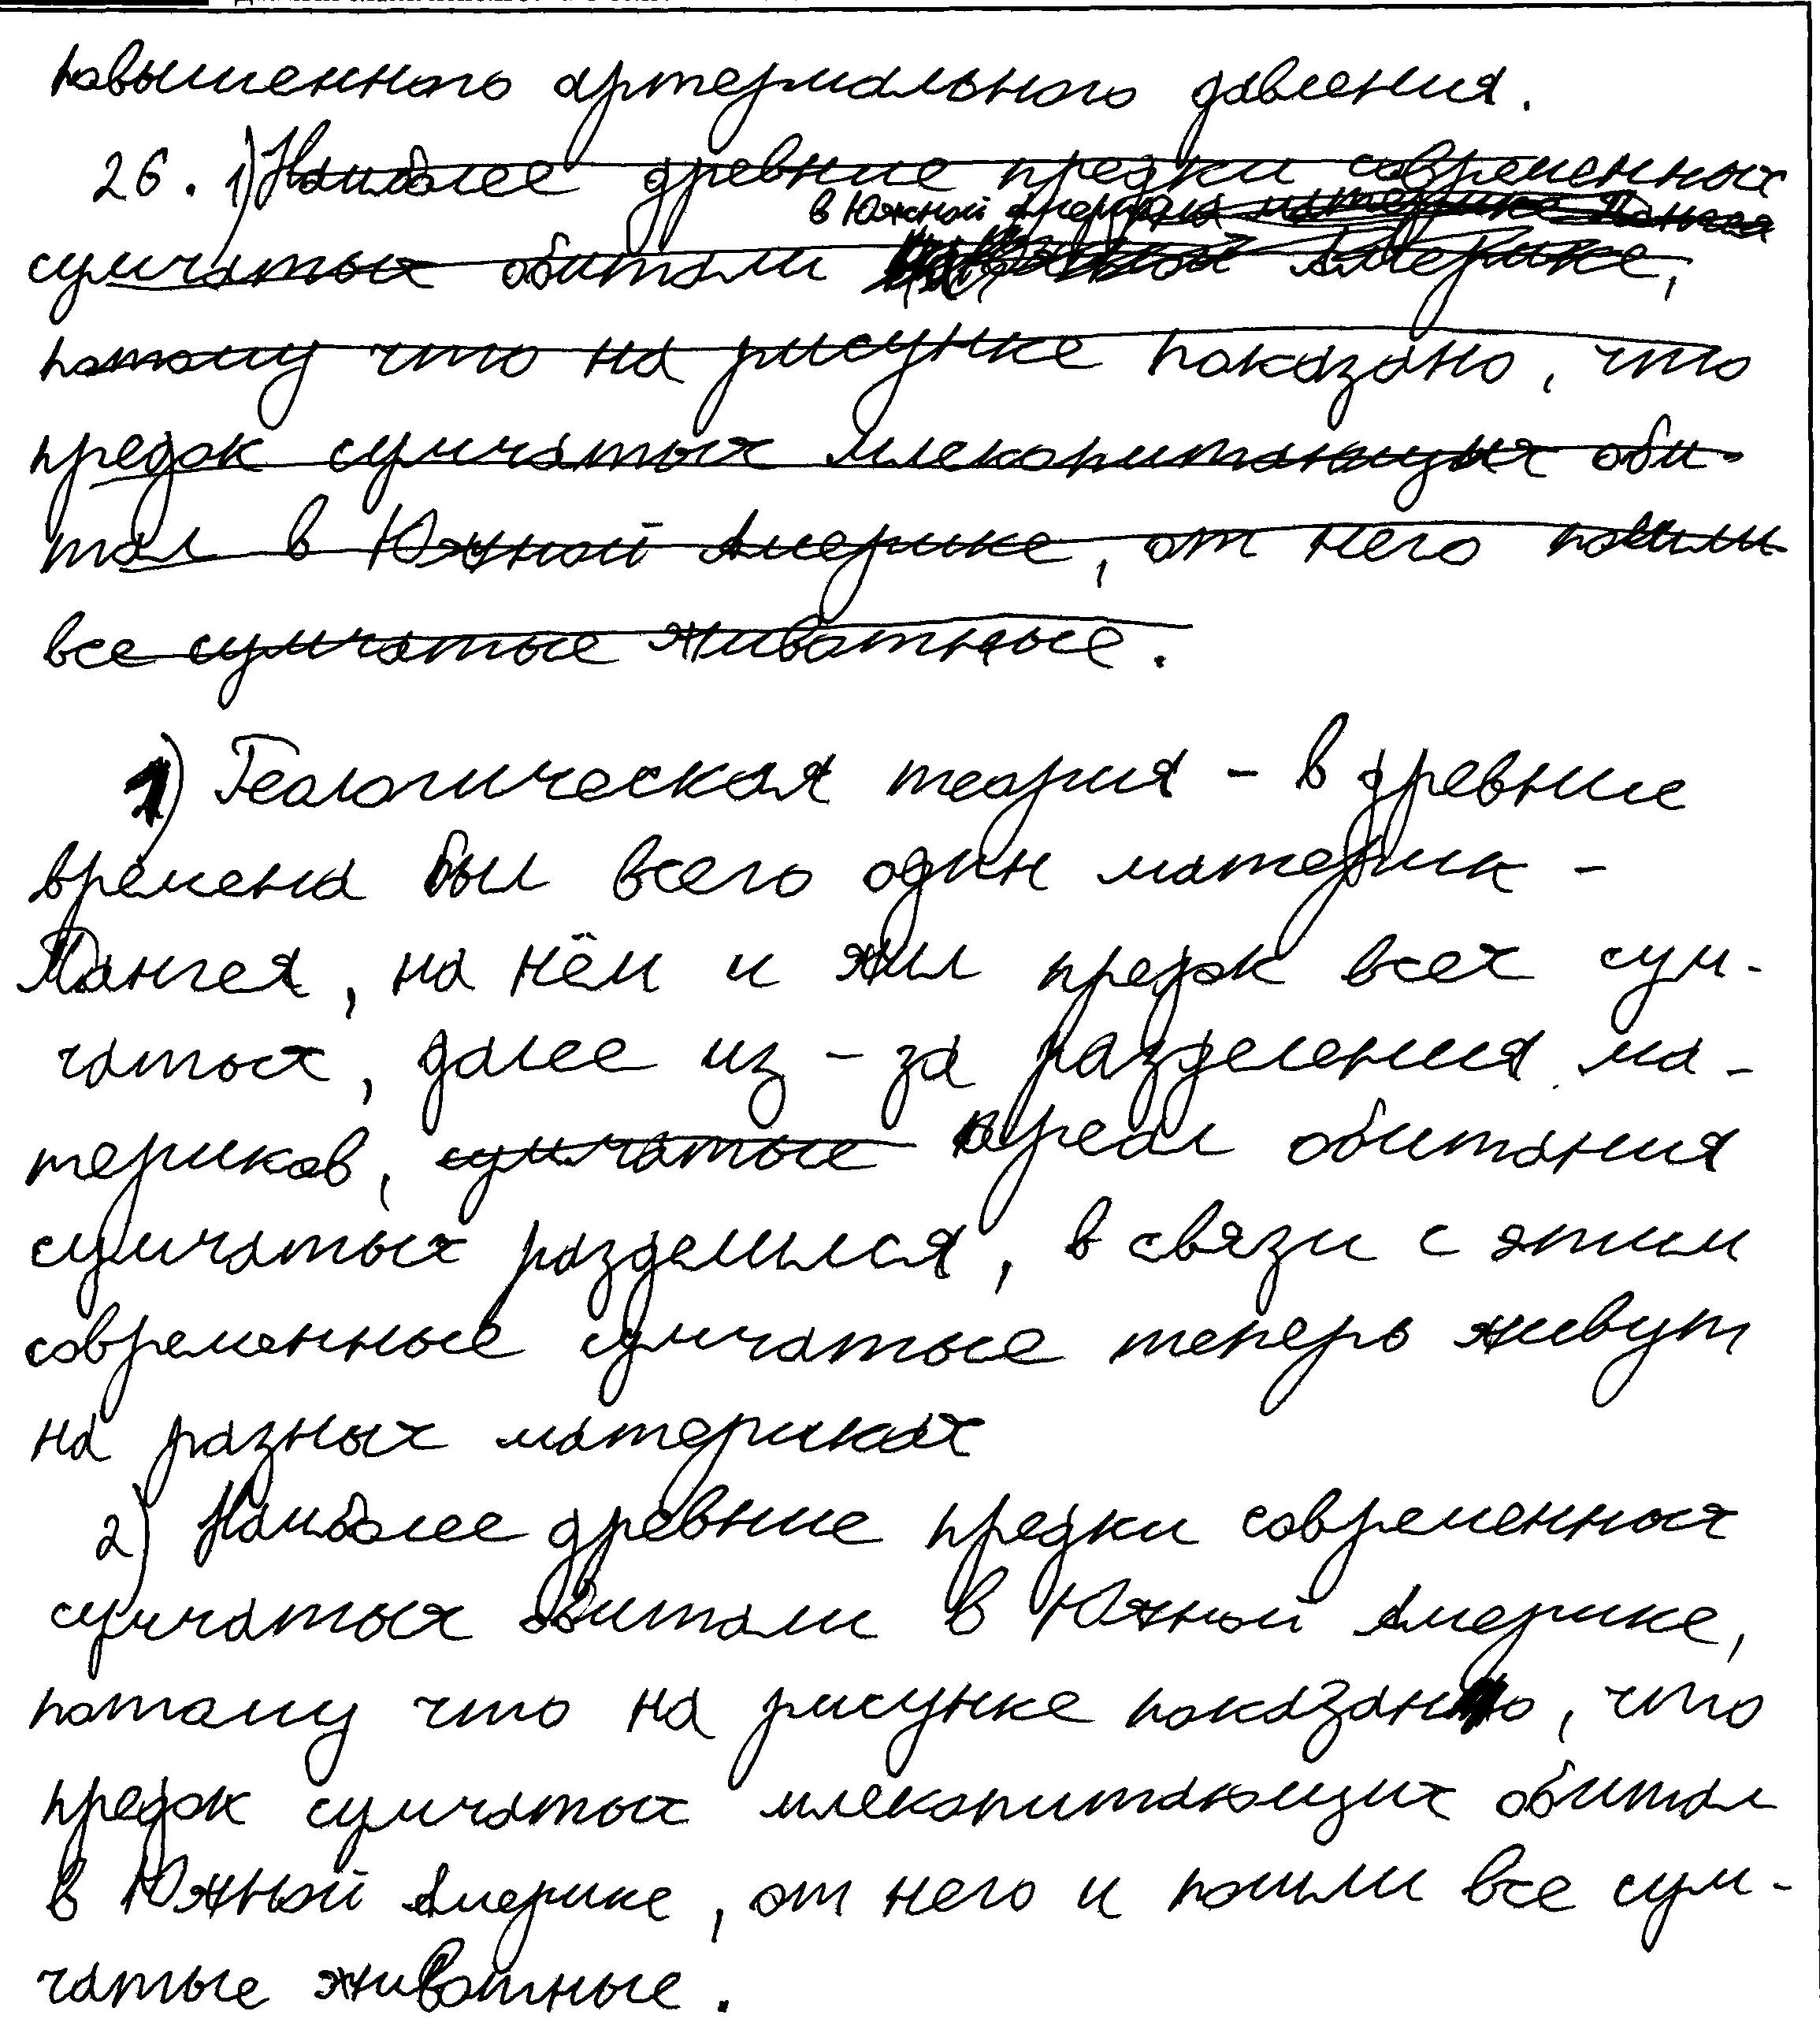 повышенного артериального давления.
26. 1) Наиболее древние предки современных
в Южной Америке материке Пангея
сумчатых обитали Америке,
потому что на рисунке показано, что
предок сумчатых млекопитающих оби-
тал в Южной Америке, от него пошли
все сумчатые животные.
1) Геологическая теория - в древние
времена был всего один материк -
Пангея, на нём и жил предок всех сум-
чатых, далее из-за разделения ма-
териков, сумчатые ареал обитания
сумчатых разделился, в связи с этим
современные сумчатые теперь живут
на разных материках
2) Наиболее древние предки современных
сумчатых обитали в Южной Америке,
потому что на рисунке показано, что
предок сумчатых млекопитающих обитал
в Южной Америке, от него и пошли все сум-
чатые животные.